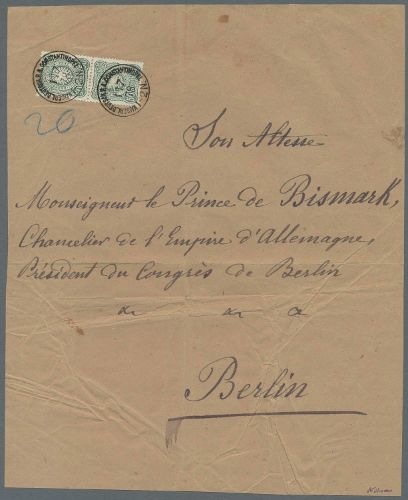 20
Son Altesse
Monseigneur le Prince de Bismark,
Chancelier de l'Empire d'Allemagne,
Président du Congrès de Berlin
Berlin